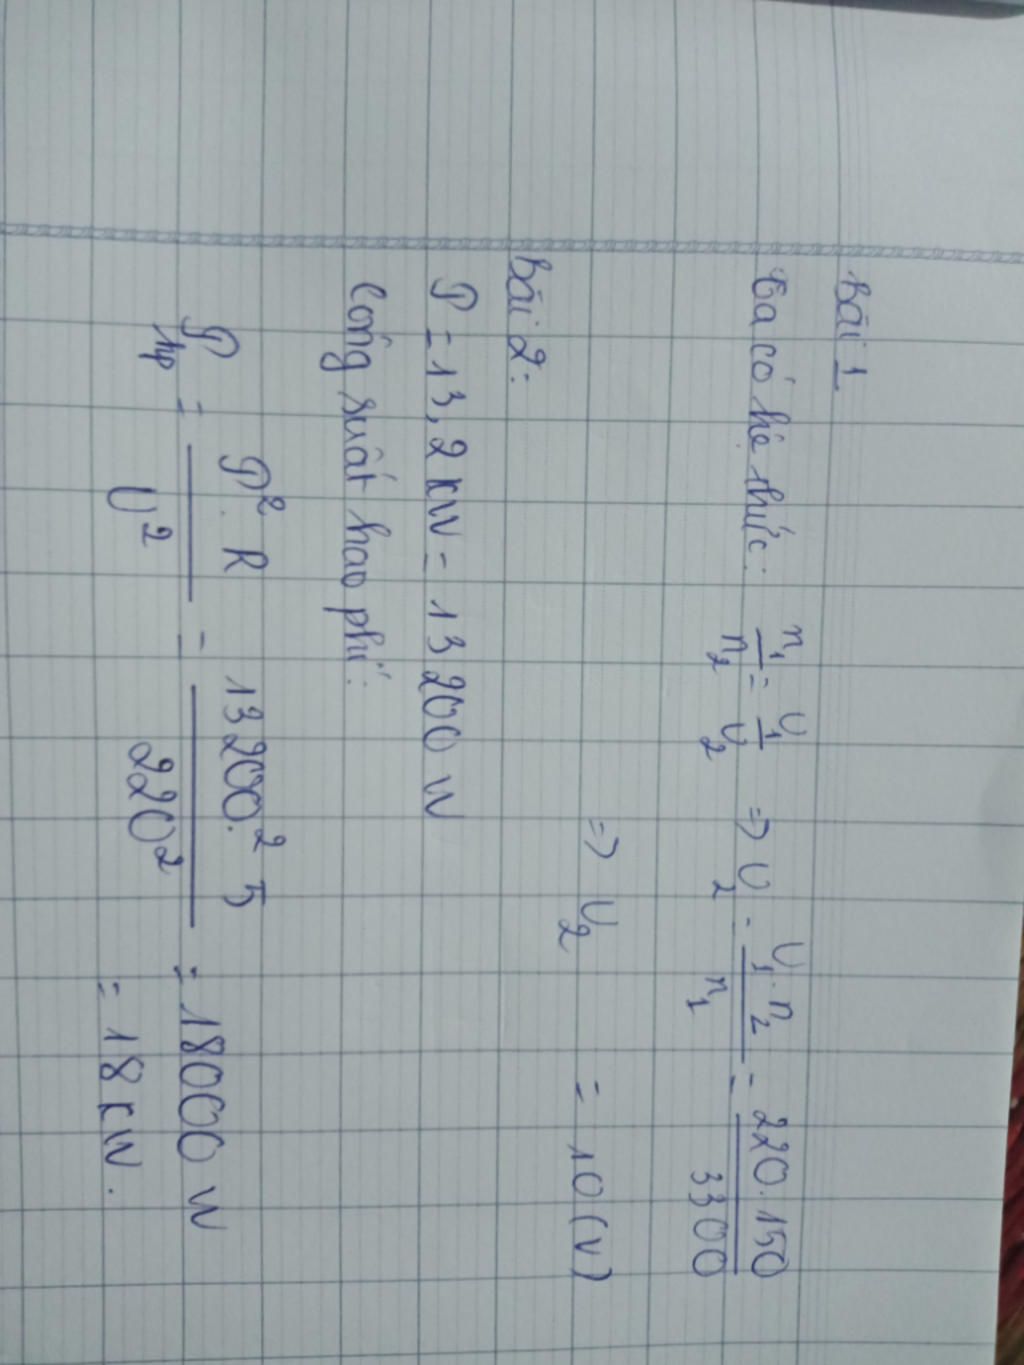 Bài 1
Ta có hệ thức: n₁/n₂ = U₁/U₂ => U₂ = U₁.n₂/n₁ = 220.150/3300
=> U₂ = 10 (V)
Bài 2:
P = 13,2 KW = 13200 W
Công suất hao phí:
P hp = P².R/U² = 13200.² 5/220² = 18000 W
= 18 KW.